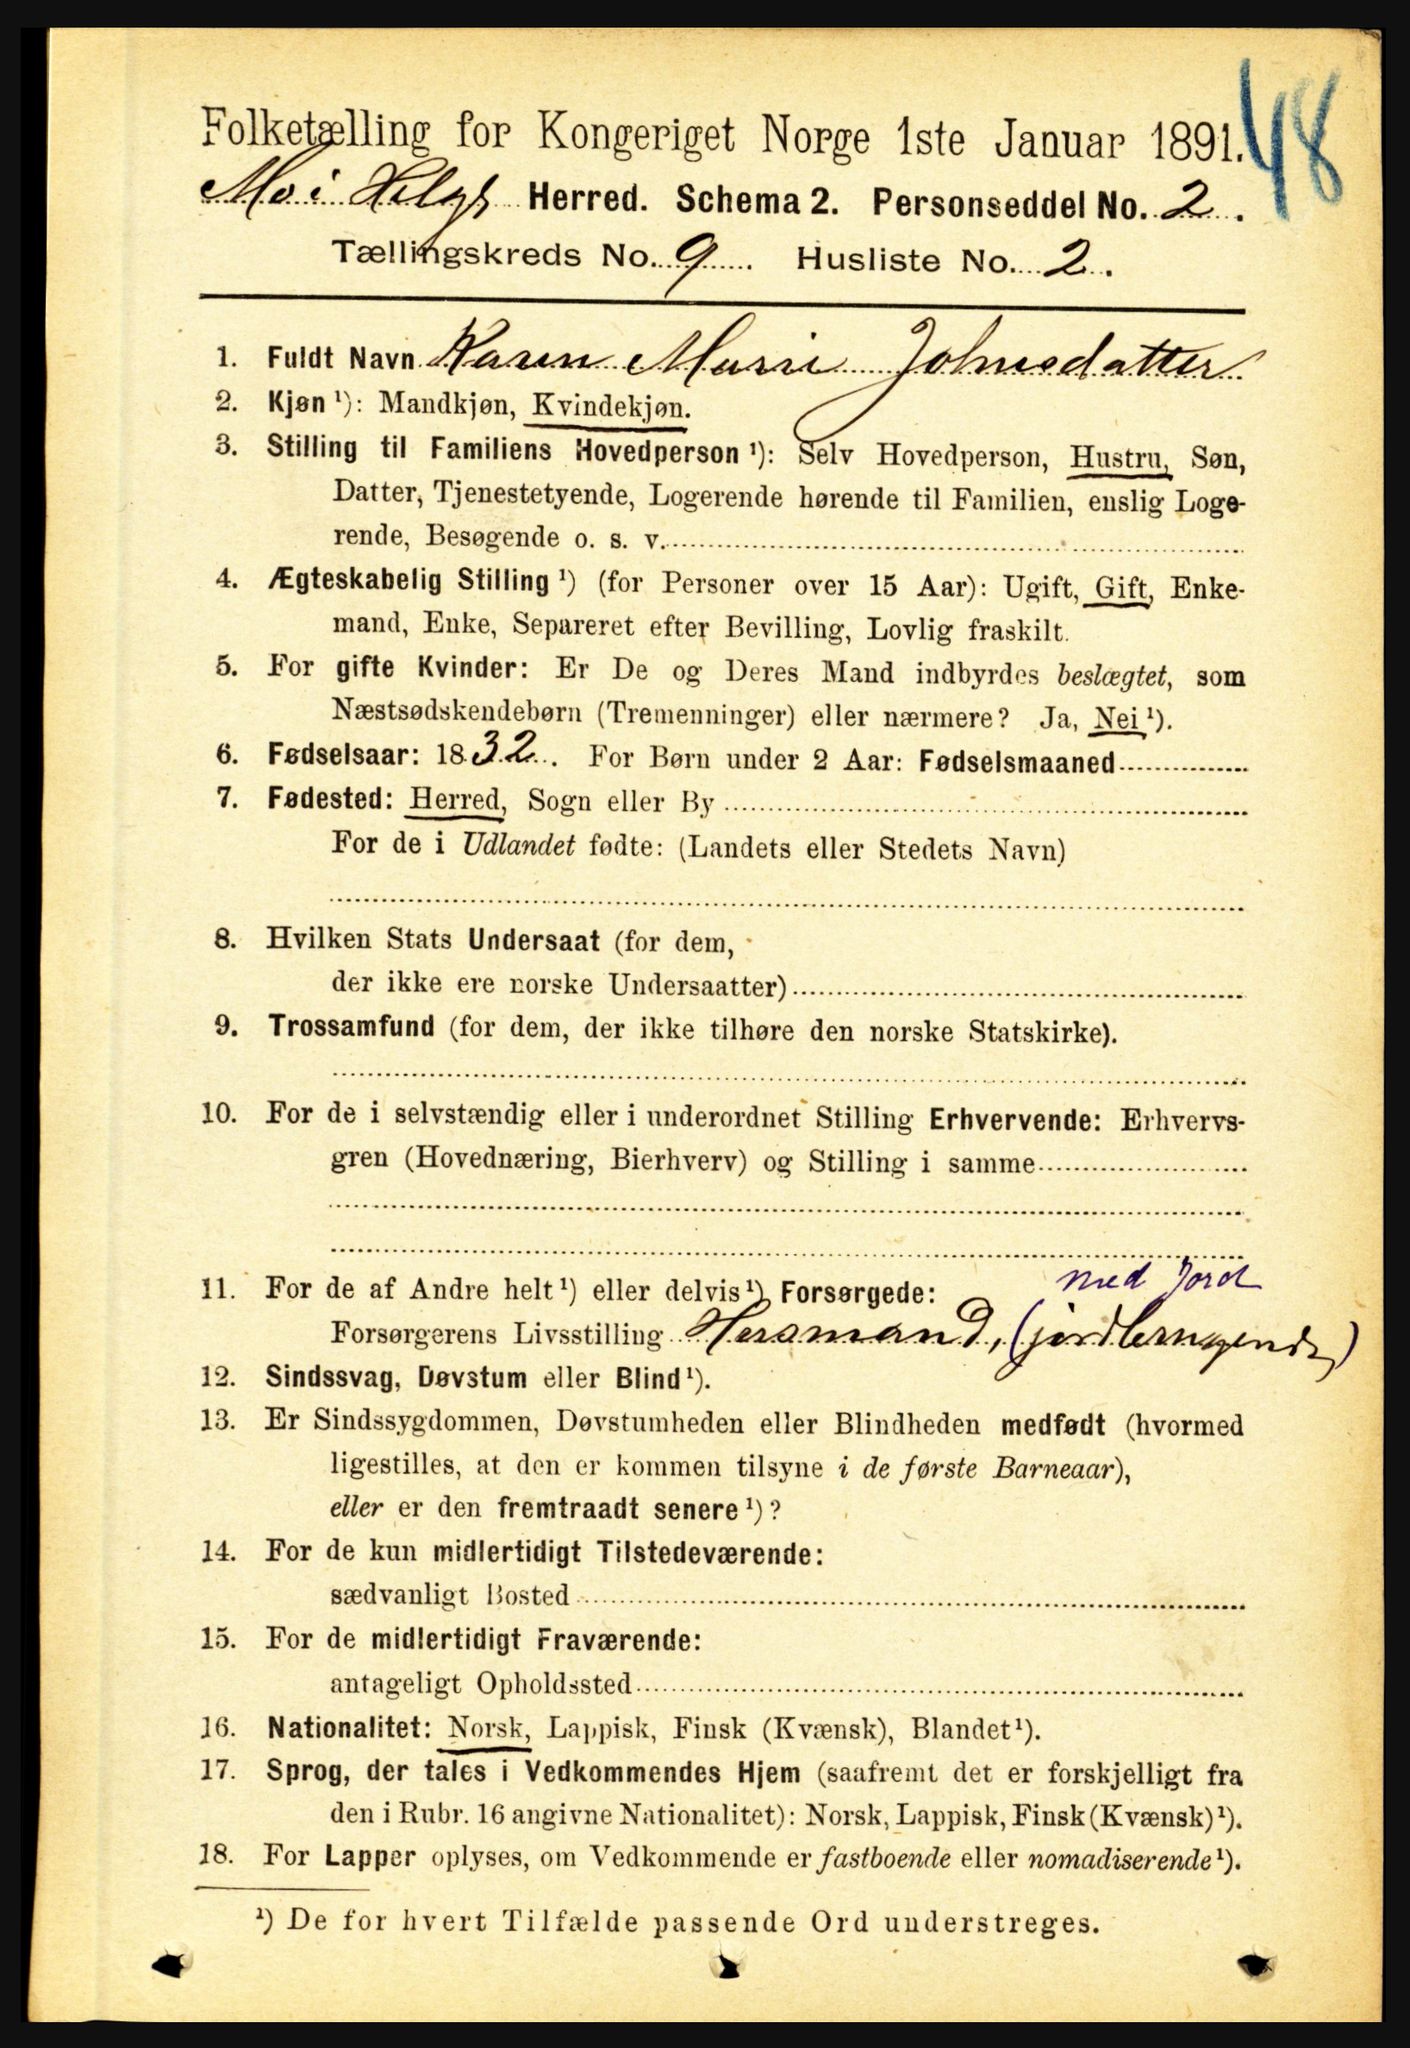 48
Folketælling for Kongeriget Norge 1ste Januar 1891.
Mo i Helg. Herred. Schema 2. Personseddel No. 2.
Tællingskreds No. 9. Husliste No. 2.
1. Fuldt Navn Karen Marie Johnsdatter
2. Kjøn ¹): Mandkjøn, Kvindekjøn.
3. Stilling til Familiens Hovedperson ¹): Selv Hovedperson, Hustru, Søn,
Datter, Tjenestetyende, Logerende hørende til Familien, enslig Loge-
rende, Besøgende o. s. v.
4. Ægteskabelig Stilling ¹) (for Personer over 15 Aar): Ugift, Gift, Enke-
mand, Enke, Separeret efter Bevilling, Lovlig fraskilt.
5. For gifte Kvinder: Er De og Deres Mand indbyrdes beslægtet, som
Næstsødskendebørn (Tremenninger) eller nærmere? Ja, Nei ¹).
6. Fødselsaar: 1832. For Børn under 2 Aar: Fødselsmaaned
7. Fødested: Herred, Sogn eller By
For de i Udlandet fødte: (Landets eller Stedets Navn)
8. Hvilken Stats Undersaat (for dem,
der ikke ere norske Undersaatter)
9. Trossamfund (for dem, der ikke tilhøre den norske Statskirke).
10. For de i selvstændig eller i underordnet Stilling Erhvervende: Erhvervs-
gren (Hovednæring, Bierhverv) og Stilling i samme
med Jord
11. For de af Andre helt ¹) eller delvis ¹) Forsørgede:
Forsørgerens Livsstilling Husmand, (jordbrugende)
12. Sindssvag, Døvstum eller Blind ¹).
13. Er Sindssygdommen, Døvstumheden eller Blindheden medfødt (hvormed
ligestilles, at den er kommen tilsyne i de første Barneaar),
eller er den fremtraadt senere ¹)?
14. For de kun midlertidigt Tilstedeværende:
sædvanligt Bosted
15. For de midlertidigt Fraværende:
antageligt Opholdssted
16. Nationalitet: Norsk, Lappisk, Finsk (Kvænsk), Blandet ¹).
17. Sprog, der tales i Vedkommendes Hjem (saafremt det er forskjelligt fra
den i Rubr. 16 angivne Nationalitet): Norsk, Lappisk, Finsk (Kvænsk) ¹).
18. For Lapper oplyses, om Vedkommende er fastboende eller nomadiserende ¹).
¹) De for hvert Tilfælde passende Ord understreges.